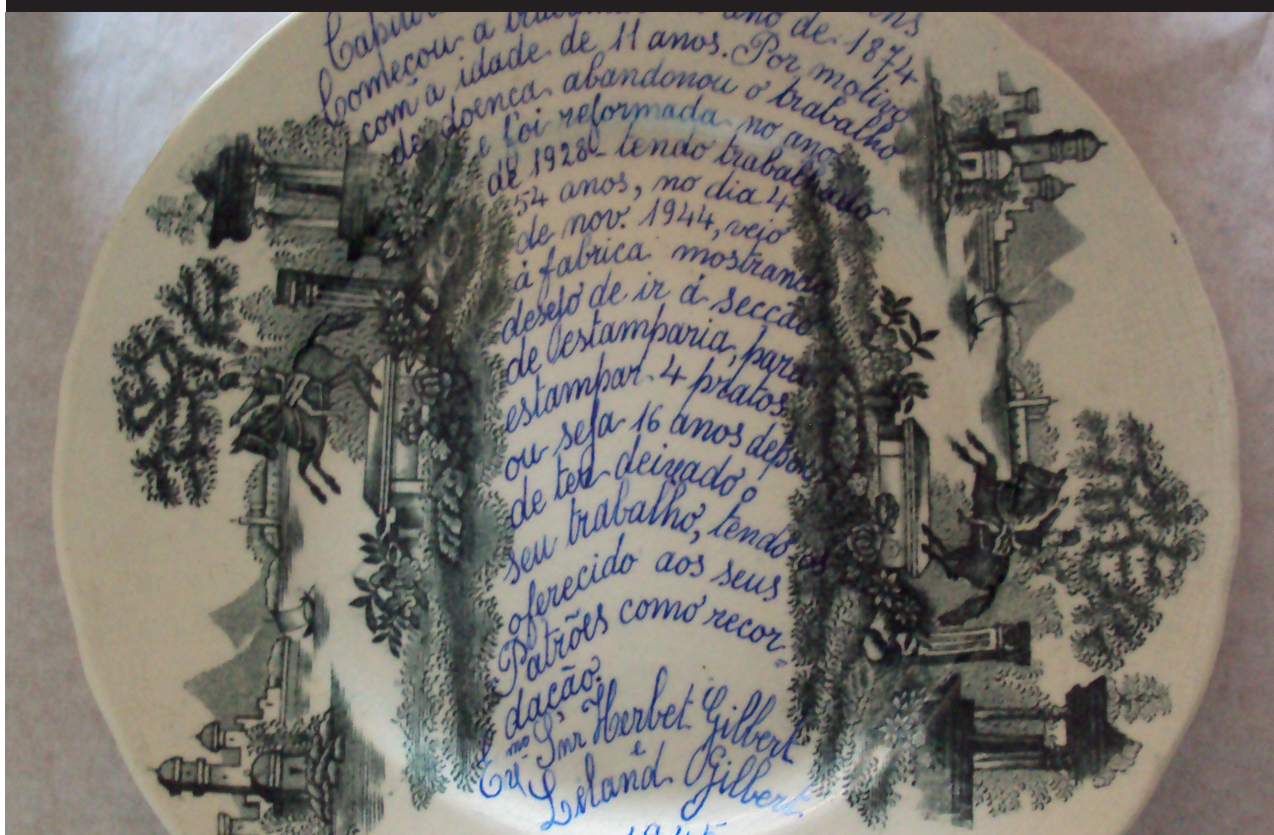 começou a trabalhar no ano de 1874
com a idade de 11 anos. Por motivo
de doença abandonou o trabalho
e foi reformada no ano
de 1928 tendo trabalhado
54 anos, no dia 4
de nov. 1944, veio
á fabrica mostrando
desejo de ir á secção
de estamparia, para
estampar 4 pratos
ou seja 16 anos depois
de ter deixado o
seu trabalho, tendo-os
oferecido aos seus
Patrões como recor-
dação.
Exmo Snr Herbet Gilbert
e
Leland Gilbert
1945